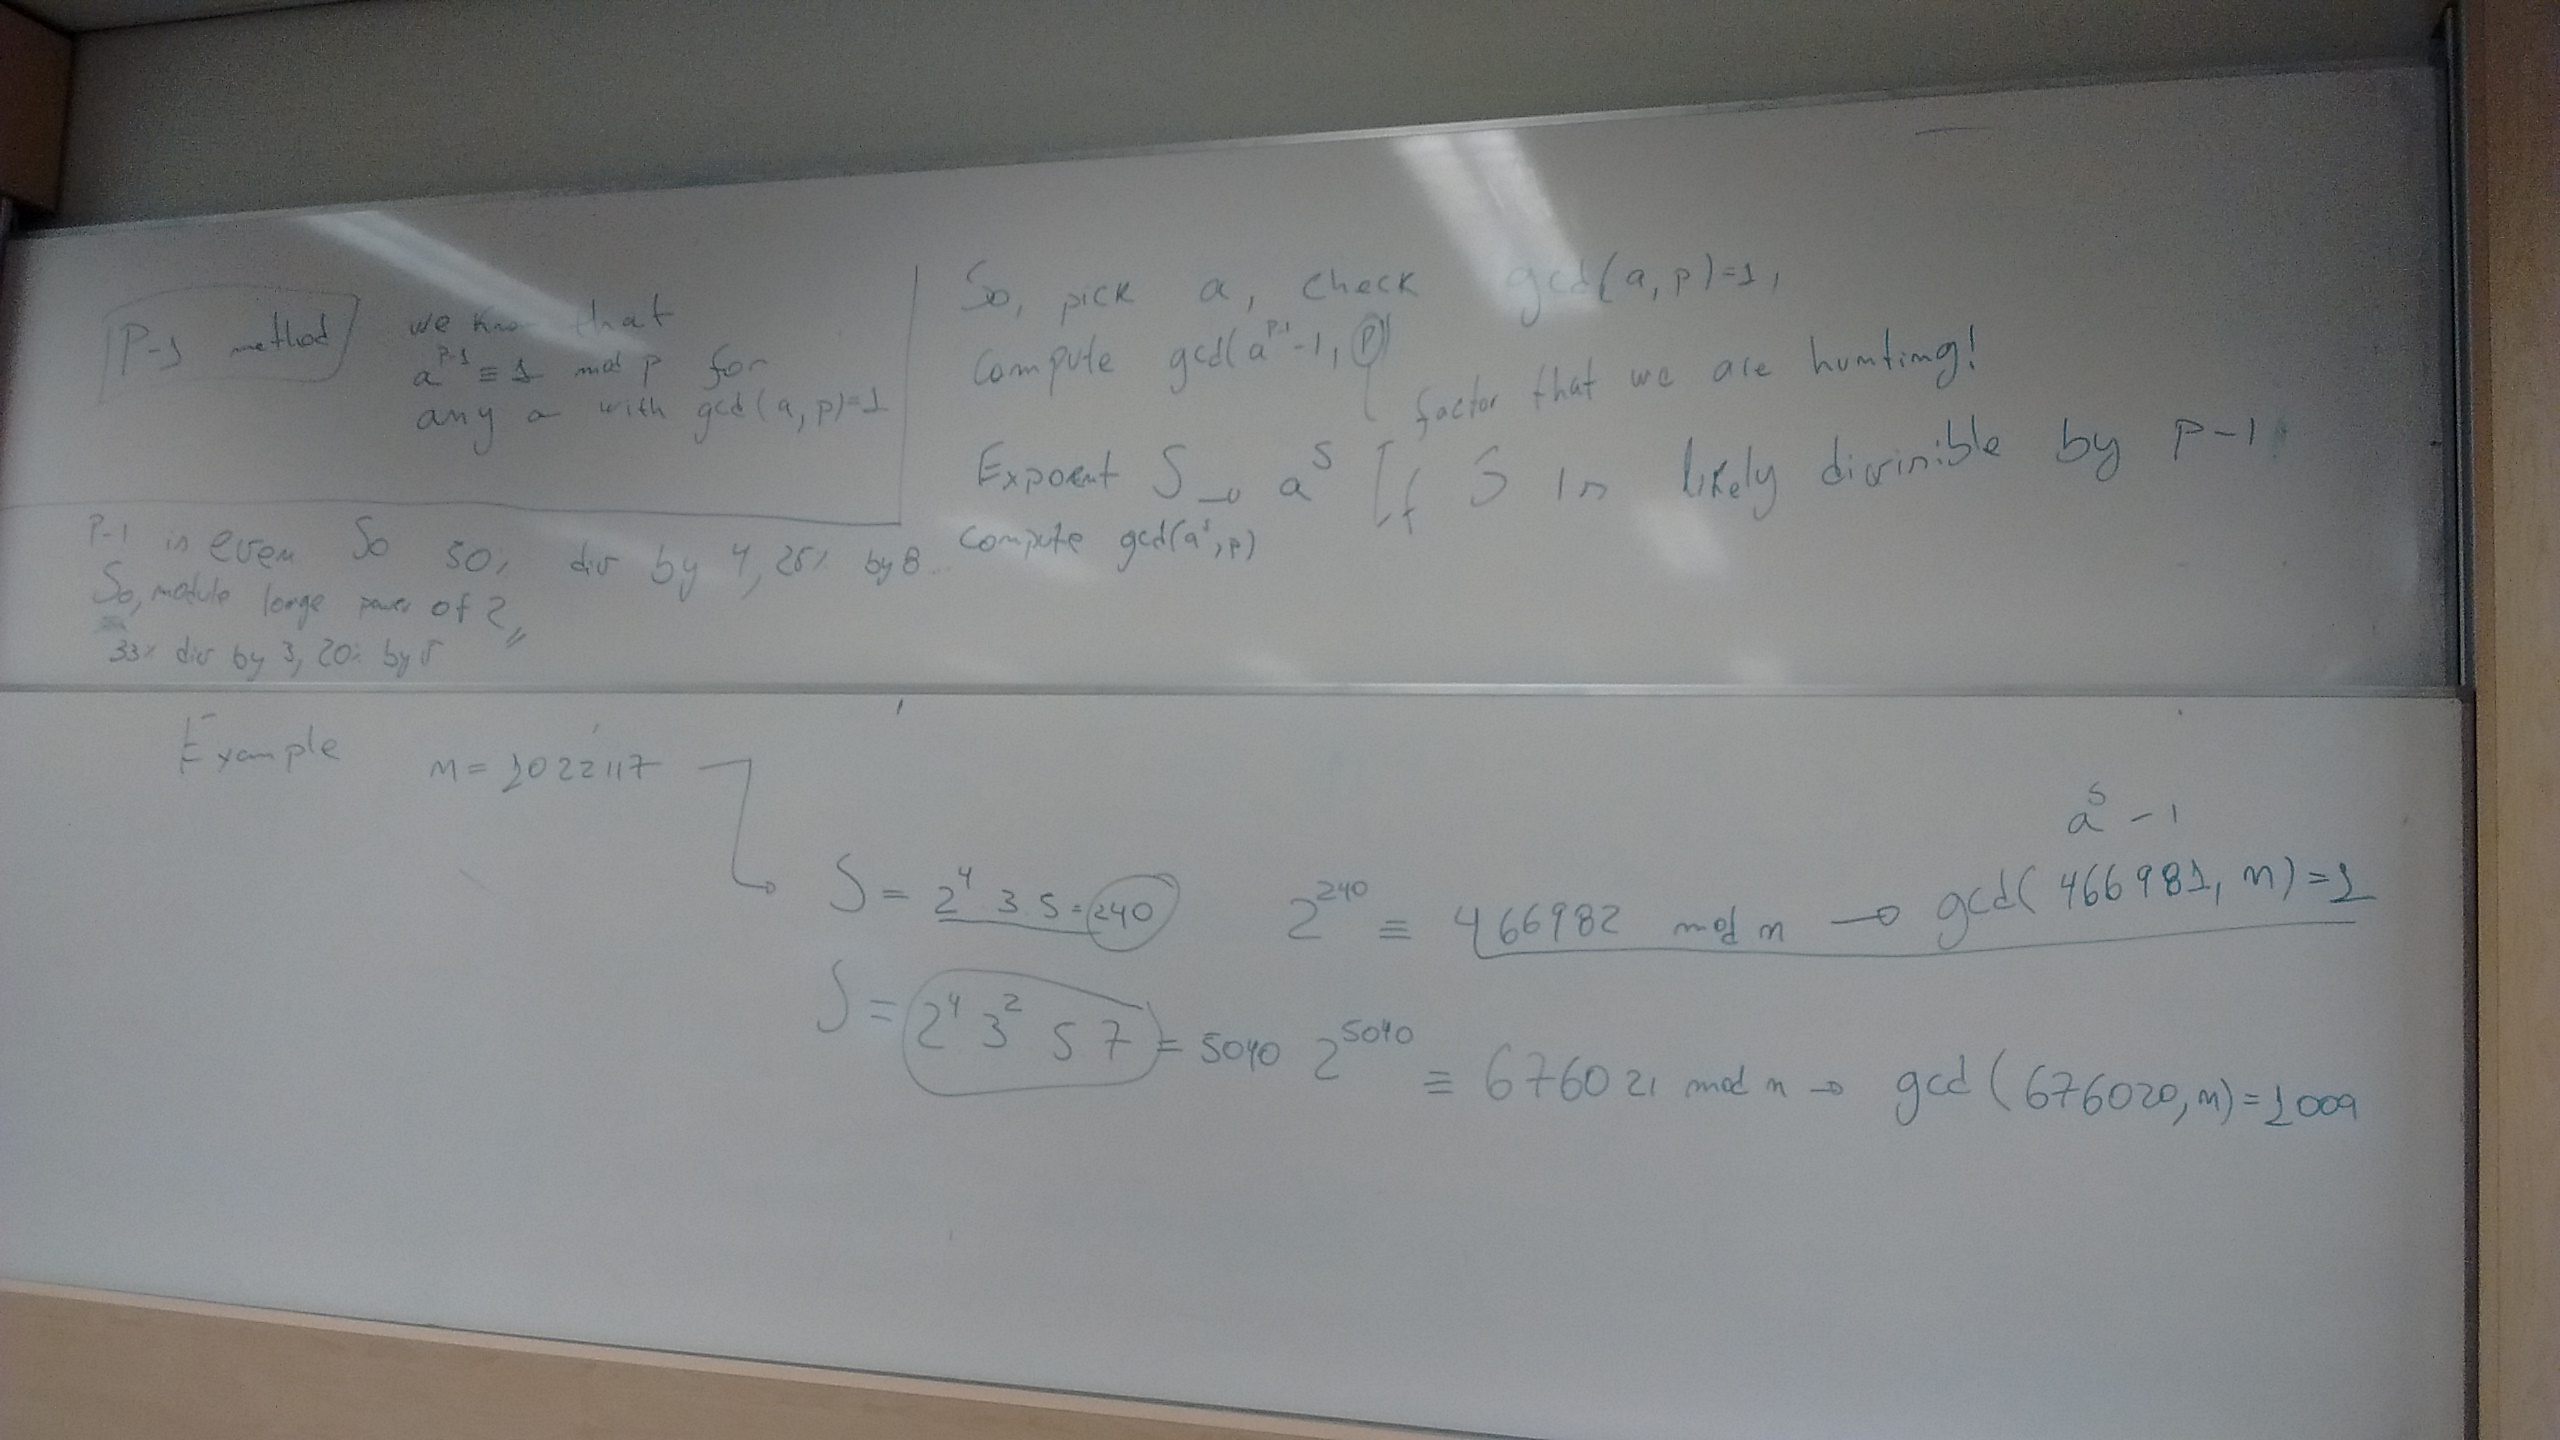 P-1 method
we know that
a^{p-1} ≡ 1 mod p for
any a with gcd(a,p)=1
P-1 is even So 50% div by 4, 25% by 8...
So, module large power of 2,,
33% div by 3, 20% by 5
So, pick a, check gcd(a,p)=1,
Compute gcd(a^{p-1}-1, p)
factor that we are hunting!
Expoent S → a^S If S is likely divisible by P-1
Compute gcd(a^s,p)
Example n = 1022117
a^s - 1
S = 2^4 3 5 = 240 2^{240} ≡ 466982 mod n → gcd(466981, n)=1
S = 2^4 3^2 5 7 = 5040 2^{5040} ≡ 676021 mod n → gcd(676020, n)=1009